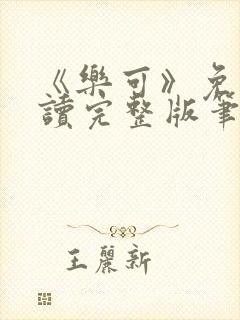 《樂可》免
讀完整版筆
王麗新